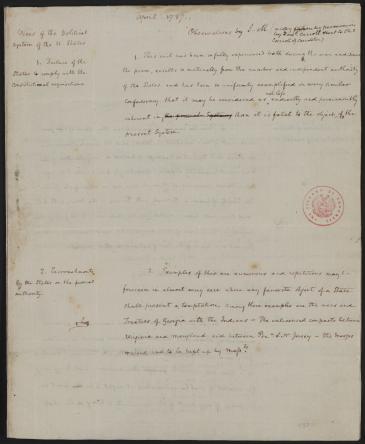 April 1787.
Vices of the Political
System of the U. States
Observations by J. M.
1. Failure of the
States to comply with the
Constitutional requisitions
1. This evil has been so fully experienced both during the war and since
the peace, results so naturally from the number and independent authority
of the States and has been so uniformly exemplified in every similar
Confederacy, that it may be considered as not less radically and permanently
inherent in than it is fatal to the object of the
present System
2. Encroachments
by the States on the federal
authority.
2. Examples of this are numerous and repetitions may be
foreseen in almost every case where any favorite object of a State
shall present a temptation. Among these examples are the wars and
Treaties of Georgia with the Indians - The unlicensed compacts between
Virginia and Maryland, and between Pena. & N. Jersey - the troops
raised and to be kept up by Massts.